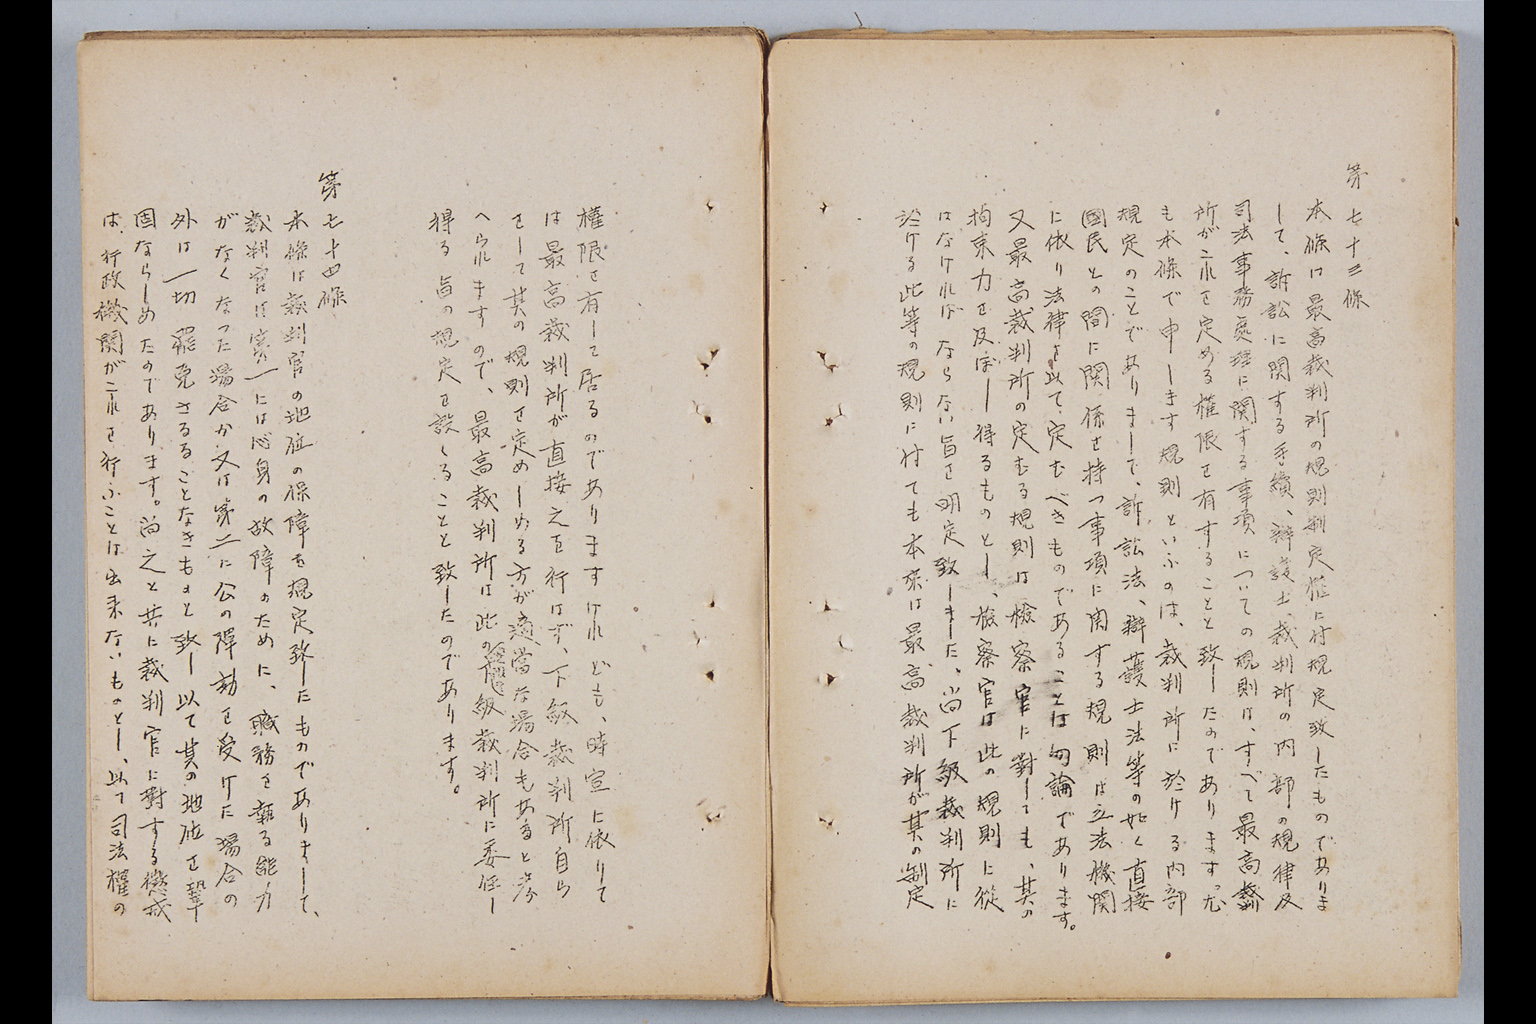 第七十三條
本條は最高裁判所の規則制定権に付規定致したものでありま
して、訴訟に関する手續、辯護士、裁判所の内部の規律及
司法事務處理に関する事項についての規則は、すべて最高裁判
所がこれを定める權限を有することと致したのであります。尤
も本條で申します規則といふのは、裁判所に於ける内部
規定のことでありまして、訴訟法、辯護士法等の如く直接
國民との間に関係を持つ事項に関する規則は立法機関
に依り法律を以て定むべきものであることは勿論であります。
又最高裁判所の定むる規則は檢察官に對しても、其の
拘束力を及ぼし得るものとし、檢察官は此の規則に從
はなければならない旨を明定致しました。尚下級裁判所に
於ける此等の規則に付ても本來は最高裁判所が其の制定
權限を有して居るのでありますけれども、時宜に依りて
は最高裁判所が直接之を行はず、下級裁判所自ら
をして其の規則を定めしめる方が適當な場合もあると考
へられますので、最高裁判所は此の權限を下級裁判所に委任し
得る旨の規定を設くることと致したのであります。
第七十四條
本條は裁判官の地位の保障を規定致したものでありまして、
裁判官は第一には心身の故障のために、職務を執る能力
がなくなった場合か又は第二に公の彈劾を受けた場合の
外は一切罷免さるることなきものと致し以て其の地位を鞏
固ならしめたのであります。尚之と共に裁判官に對する懲戒
は、行政機関がこれを行ふことは出来ないものとし、以て司法權の